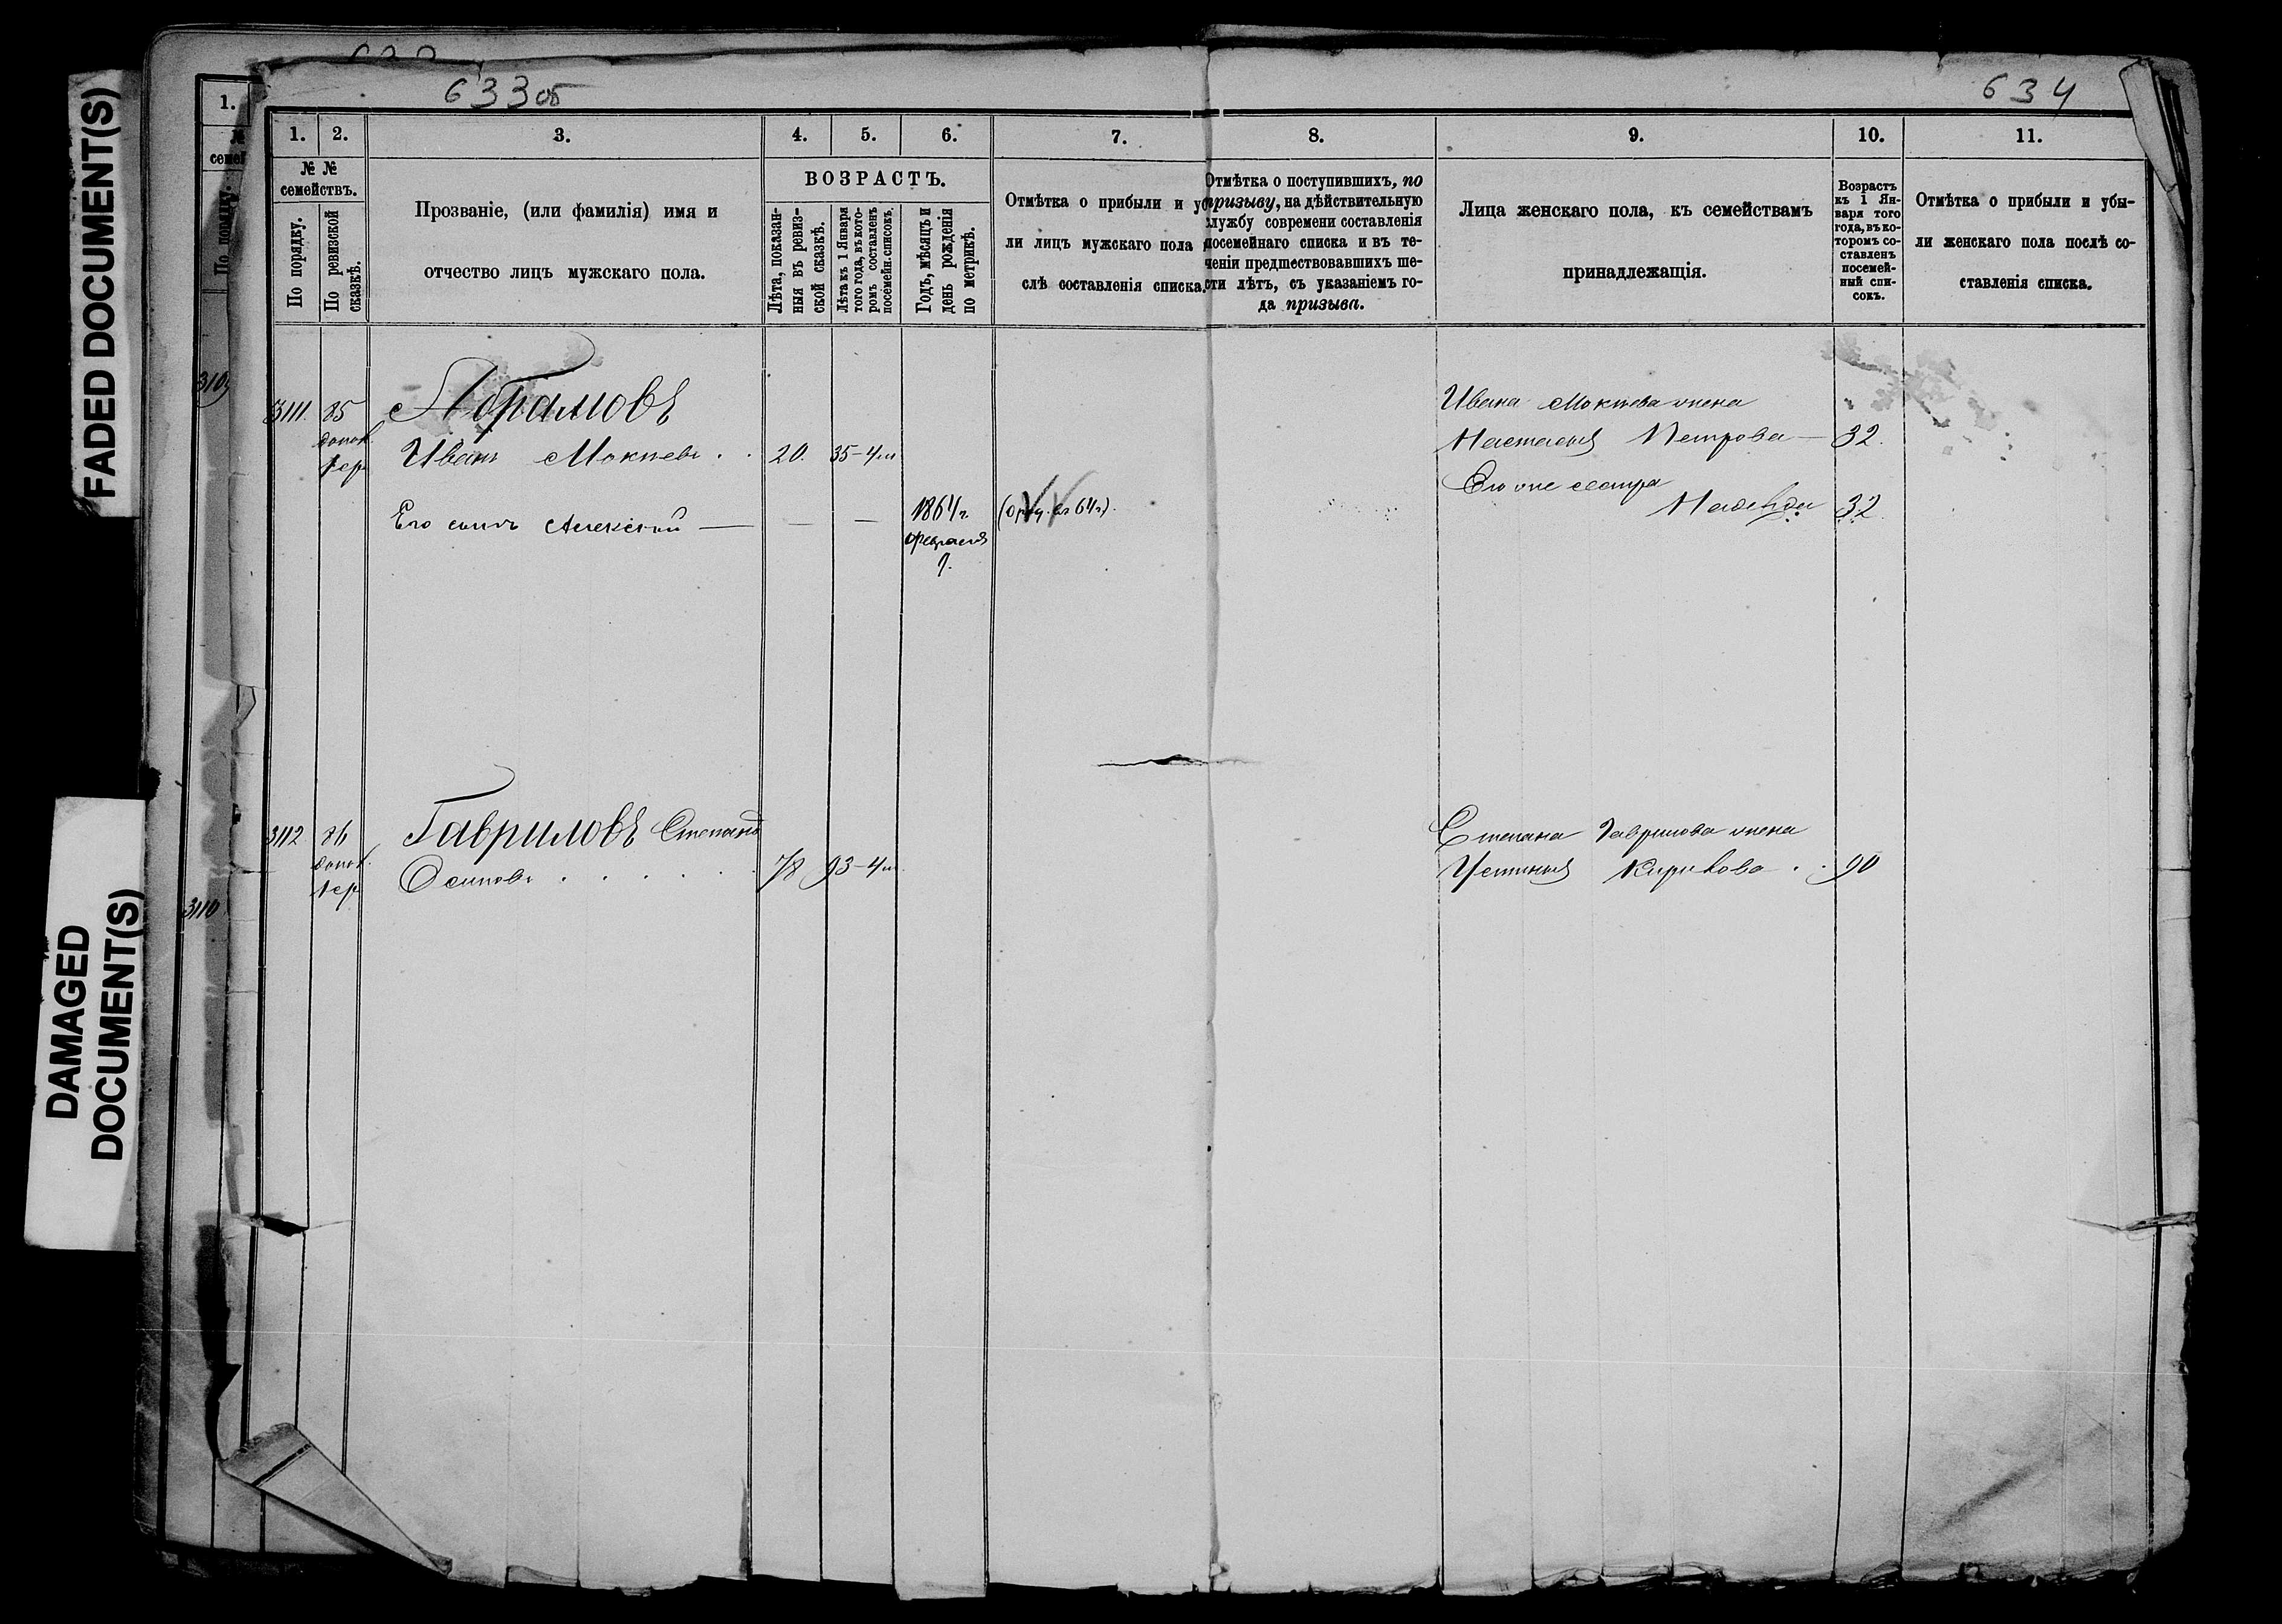 FADED DOCUMENT(S)
DAMAGED
DOCUMENT(S)
633 об
634
1.
По порядку.
3110
1. 2. 3. 4. 5. 6. 7. 8. 9. 10. 11.
№ №
семействъ.
По порядку.
По ревизской
сказкѣ.
Прозваніе, (или фамилія) имя и
отчество лицъ мужскаго пола.
ВОЗРАСТЪ.
Лѣта, показан-
ныя въ ревиз-
ской сказкѣ.
Лѣта къ 1 Января
того года, въ кото-
ромъ составленъ
посемейн. списокъ.
Годъ, мѣсяцъ и
день рожденія
по метрикѣ.
Отмѣтка о прибыли и уб
ли лицъ мужскаго пола
слѣ составленія списка.
Отмѣтка о поступившихъ, по
призыву, на дѣйствительную
службу современи составленія
посемейнаго списка и въ те-
ченіи предшествовавшихъ ше-
сти лѣтъ, съ указаніемъ го-
да призыва.
Лица женскаго пола, къ семействамъ
принадлежащія.
Возрастъ
къ 1 Ян-
варя того
года, въ ко-
торомъ со-
ставленъ
посемей-
ный спи-
сокъ.
Отмѣтка о прибыли и убы-
ли женскаго пола послѣ со-
ставленія списка.
3111. 85 Абрамовъ
допол.
Иванъ Мокѣевъ 20. 35-4м
Его сынъ Алексѣй — — — 1864г.
февраля
Ивана Мокѣева жена
Настасья Петрова — 32.
Его же сестра
Надежда 32.
3112 86 Гавриловъ Степанъ
допол.
Осиповъ 78 93-4м
Степана Гаврилова жена
Устинья Кирилова 90